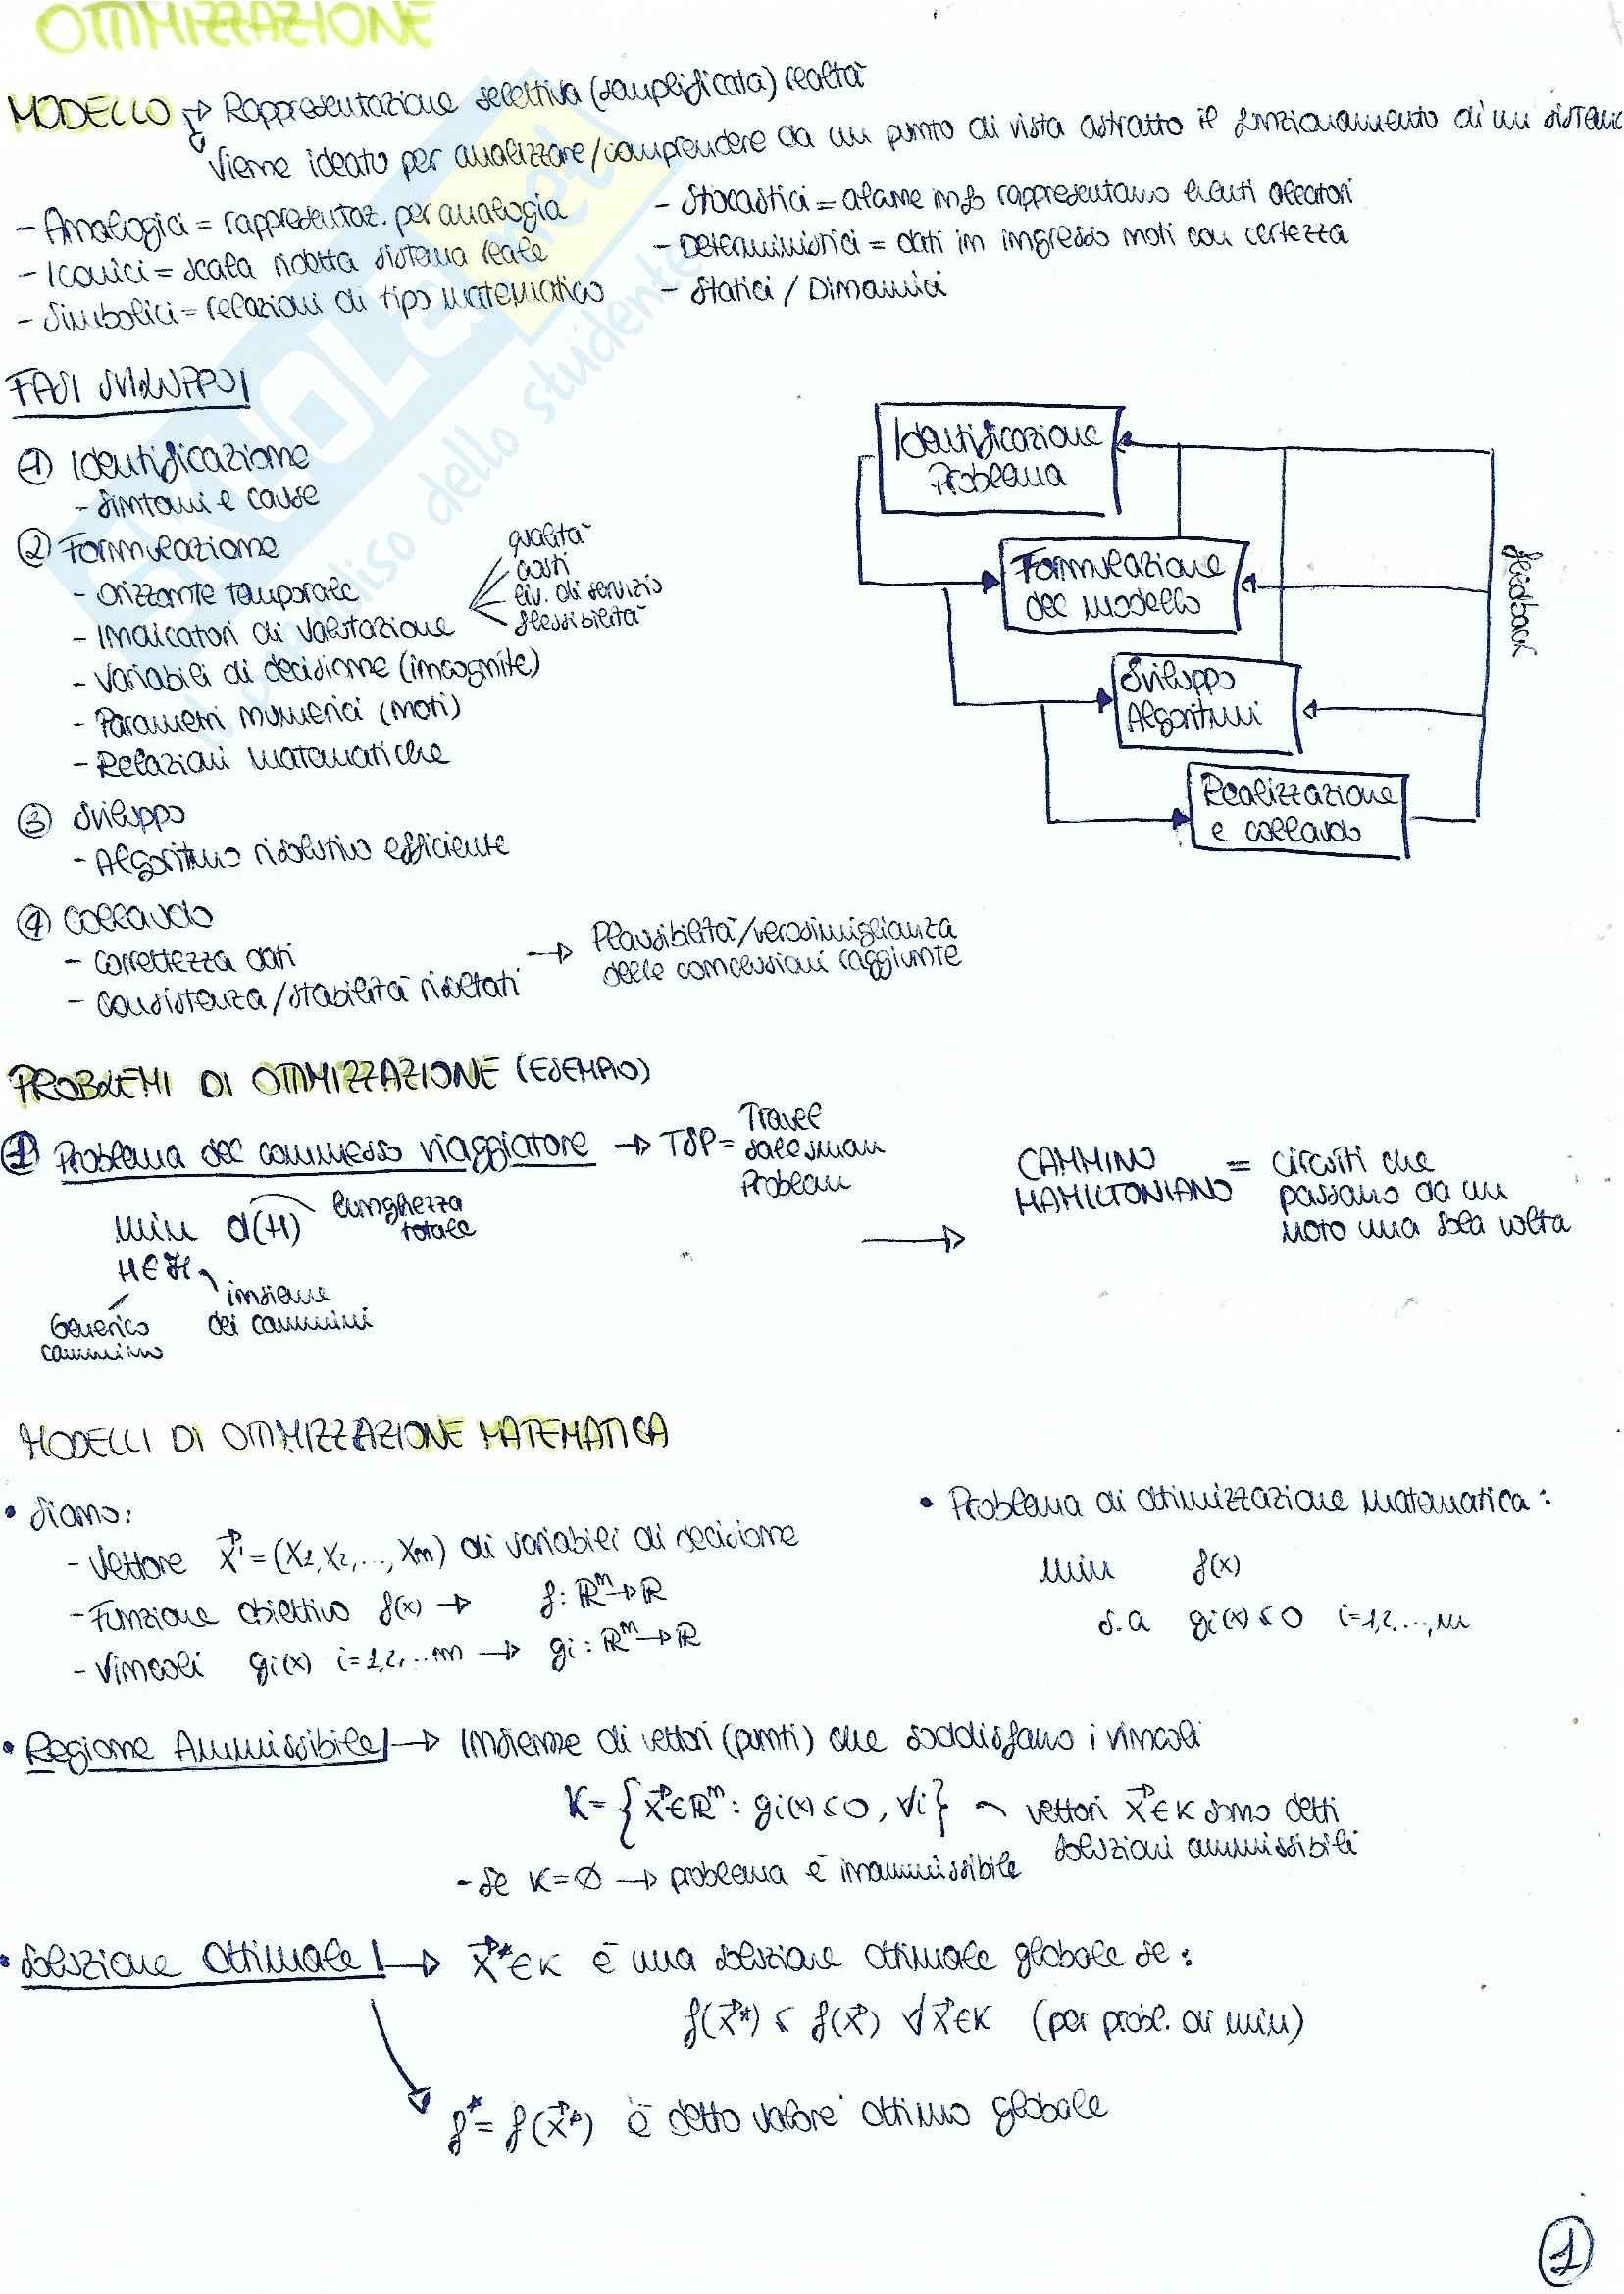 OTTIMIZZAZIONE
MODELLO → Rappresentazione selettiva (semplificata) realtà
↳ Viene ideato per analizzare/comprendere da un punto di vista astratto il funzionamento di un sistema
- Analogici = rappresentaz. per analogia
- Iconici = scala ridotta sistema reale
- Simbolici = relazioni di tipo matematico
- Stocastici = alcune info rappresentano eventi aleatori
- Deterministici = dati in ingresso noti con certezza
- Statici / Dinamici
FASI SVILUPPO
① Identificazione
- Sintomi e cause
② Formulazione
- Orizzonte temporale
- Indicatori di valutazione
qualità
costi
liv. di servizio
flessibilità
- Variabili di decisione (incognite)
- Parametri numerici (noti)
- Relazioni matematiche
③ Sviluppo
- Algoritmo risolutivo efficiente
④ Collaudo
- correttezza dati
- consistenza/stabilità risultati
→ Plausibilità/verosimiglianza
delle conclusioni raggiunte
Identificazione
Problema
Formulazione
del modello
Sviluppo
Algoritmi
Realizzazione
e collaudo
feedback
PROBLEMI DI OTTIMIZZAZIONE (ESEMPIO)
① Problema del commesso viaggiatore → TSP = Travel
salesman
Problem
min d(H) lunghezza
totale
H∈ℋ
Generico
cammino
insieme
dei cammini
→
CAMMINO
HAMILTONIANO
= circuiti che
passano da un
nodo una sola volta
MODELLI DI OTTIMIZZAZIONE MATEMATICA
• Siano:
- Vettore x⃗ = (x1, x2, ..., xn) di variabili di decisione
- Funzione obiettivo f(x) → f: ℝⁿ → ℝ
- Vincoli gi(x) i=1,2,...m → gi: ℝⁿ → ℝ
• Problema di ottimizzazione matematica:
min f(x)
s.a gi(x) ≤ 0 i=1,2,...,m
• Regione Ammissibile → Insieme di vettori (punti) che soddisfano i vincoli
K = {x⃗∈ℝⁿ: gi(x) ≤ 0, ∀i} ~ vettori x⃗∈K sono detti
soluzioni ammissibili
- Se K=∅ → problema è inammissibile
• Soluzione Ottimale → x⃗*∈K è una soluzione ottimale globale se:
f(x⃗*) ≤ f(x⃗) ∀x⃗∈K (per probl. di min)
f* = f(x⃗*) è detto valore ottimo globale
1
dello studente